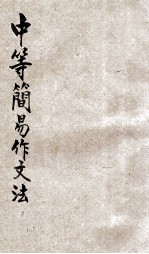 中等簡易作文法